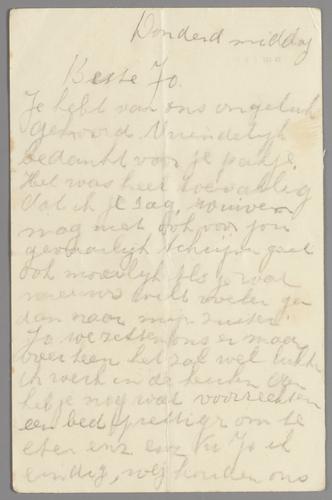 Donderd middag
Beste Jo.
Je hebt van ons ongeluk
gehoord Vriendelijk
bedankt voor je pakje.
Het was heel toevallig
dat ik je zag,
mag niet ook voor jou
gevaarlijk schrijven gaat
ook moeilijk als je wat
nieuws wilt weten ga
dan naar mijn zuster.
Jo we zetten ons er maar
overheen het zal wel lukken
ik werk in de keuken dan
heb je nog wat voorrechten
een bed prettiger om te
eten enz enz Nu Jo ik
eindig, wij houden ons